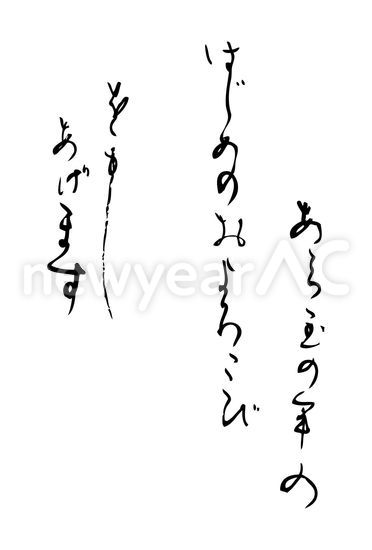 あら玉の年の
はじめのおよろこび
を申し
あげます
newyearAC